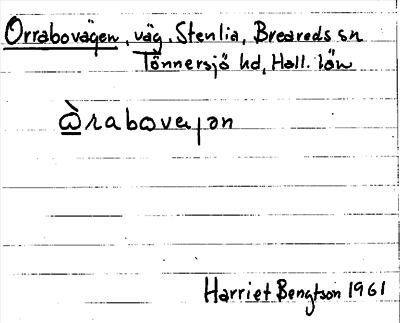 Orrabovägen, väg. Stenlia, Breareds sn
Tönnersjö hd, Hall. län
ὼraboveȷən
Harriet Bengtson 1961